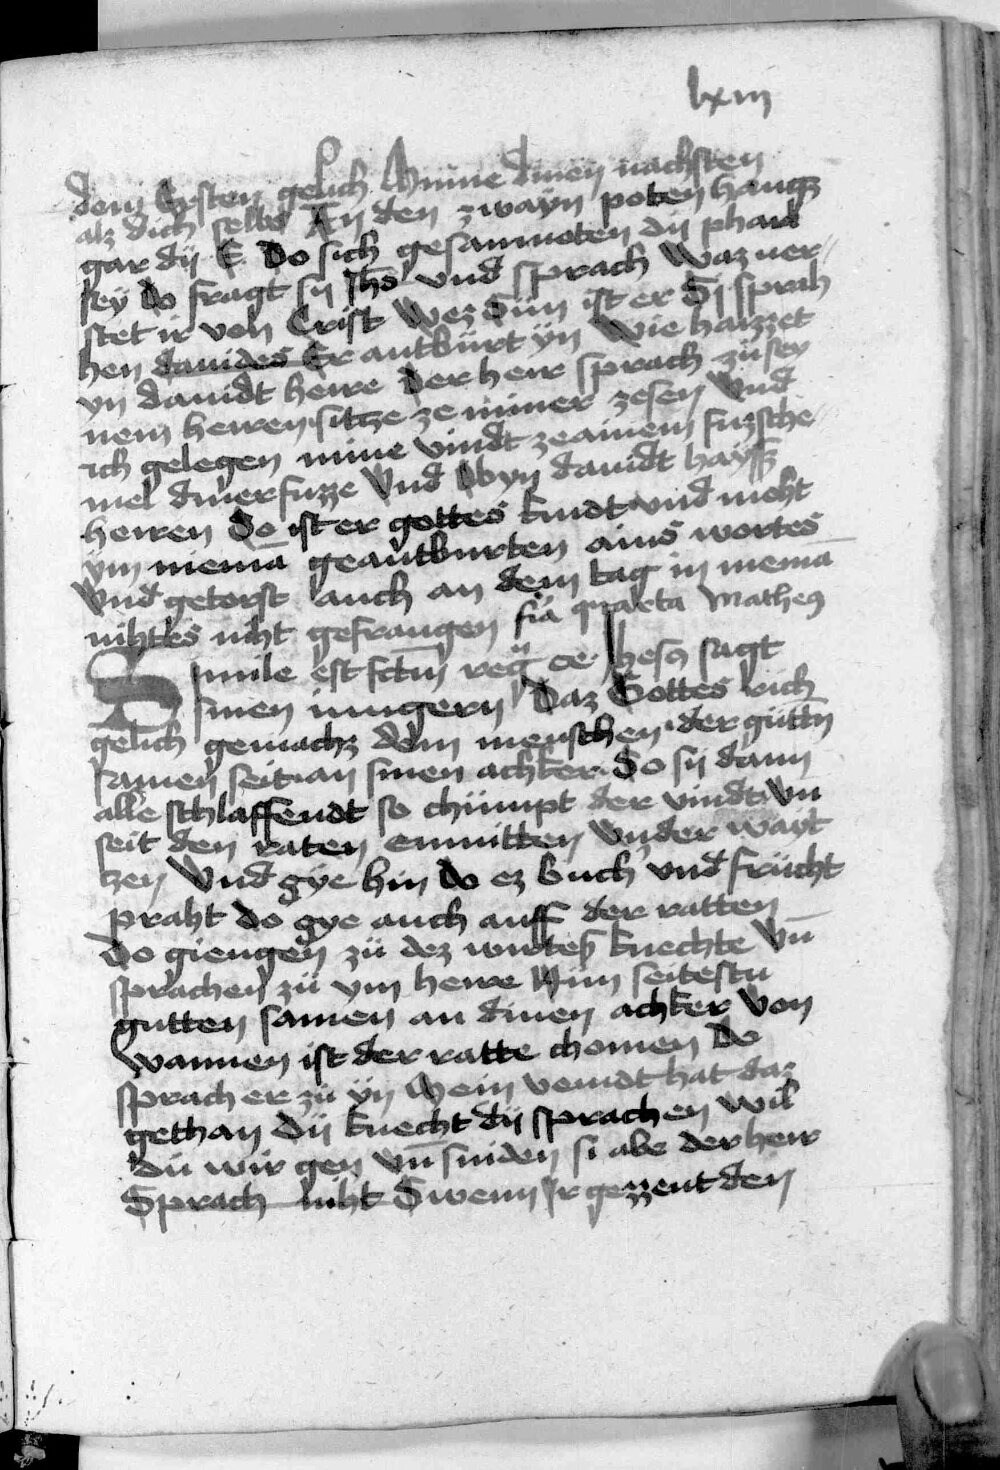 lxiii
dem Ersten gelich Minne dinen nachsten
alz dich selbs An den zwayn poten hangz
gar dÿ E Do sich gesamnoten dÿ phari
sey do fragt sÿ Jhs vnd sprach Waz ver-
stet ir von Crist Wez Sun ist er Si sprah
hen dauides Er antbürt ÿn Wie haizzet
yn dauidt herre Der herr sprach zü sey
nem herren sitze ze miner zesen Vnd
ich gelegen mine vindt ze ainem fuzsche-
mel diner fuzze Vnd Wyn dauidt hayssz
herren So ist er gottes kindt vnd moht
ym niemā geantburten ains wortes
Vnd getorst auch an dem tag in niemā
nihtes niht gefraugen fīa quarta Matheus
Simile est fctm̄ regn̄ ce Jhesus sagt
sinen iungern Daz Gottes rich
gelich gemachz dem menschen der gūttn
samen seit an sinen achker So sÿ dann
alle schlaffendt so chümpt der vindt vn̄
seit den raten enmitten vnder wayt
zen Vnd gÿe hin do ez buch vnd frücht
praht do gye auch auff der ratten
Do giengen zü dez wirtes knechte Vn̄
sprachen zü ym herre Nun seitestu
gutten samen an dinen achker Von
wannen ist der ratte chomen Do
sprach er zü ÿn Mein veindt hat daz
gethan Dÿ knecht dÿ sprachen wil
dü wir gen vn̄ sniden si abe der herr
Sprach niht Swenn Jr gezzent den